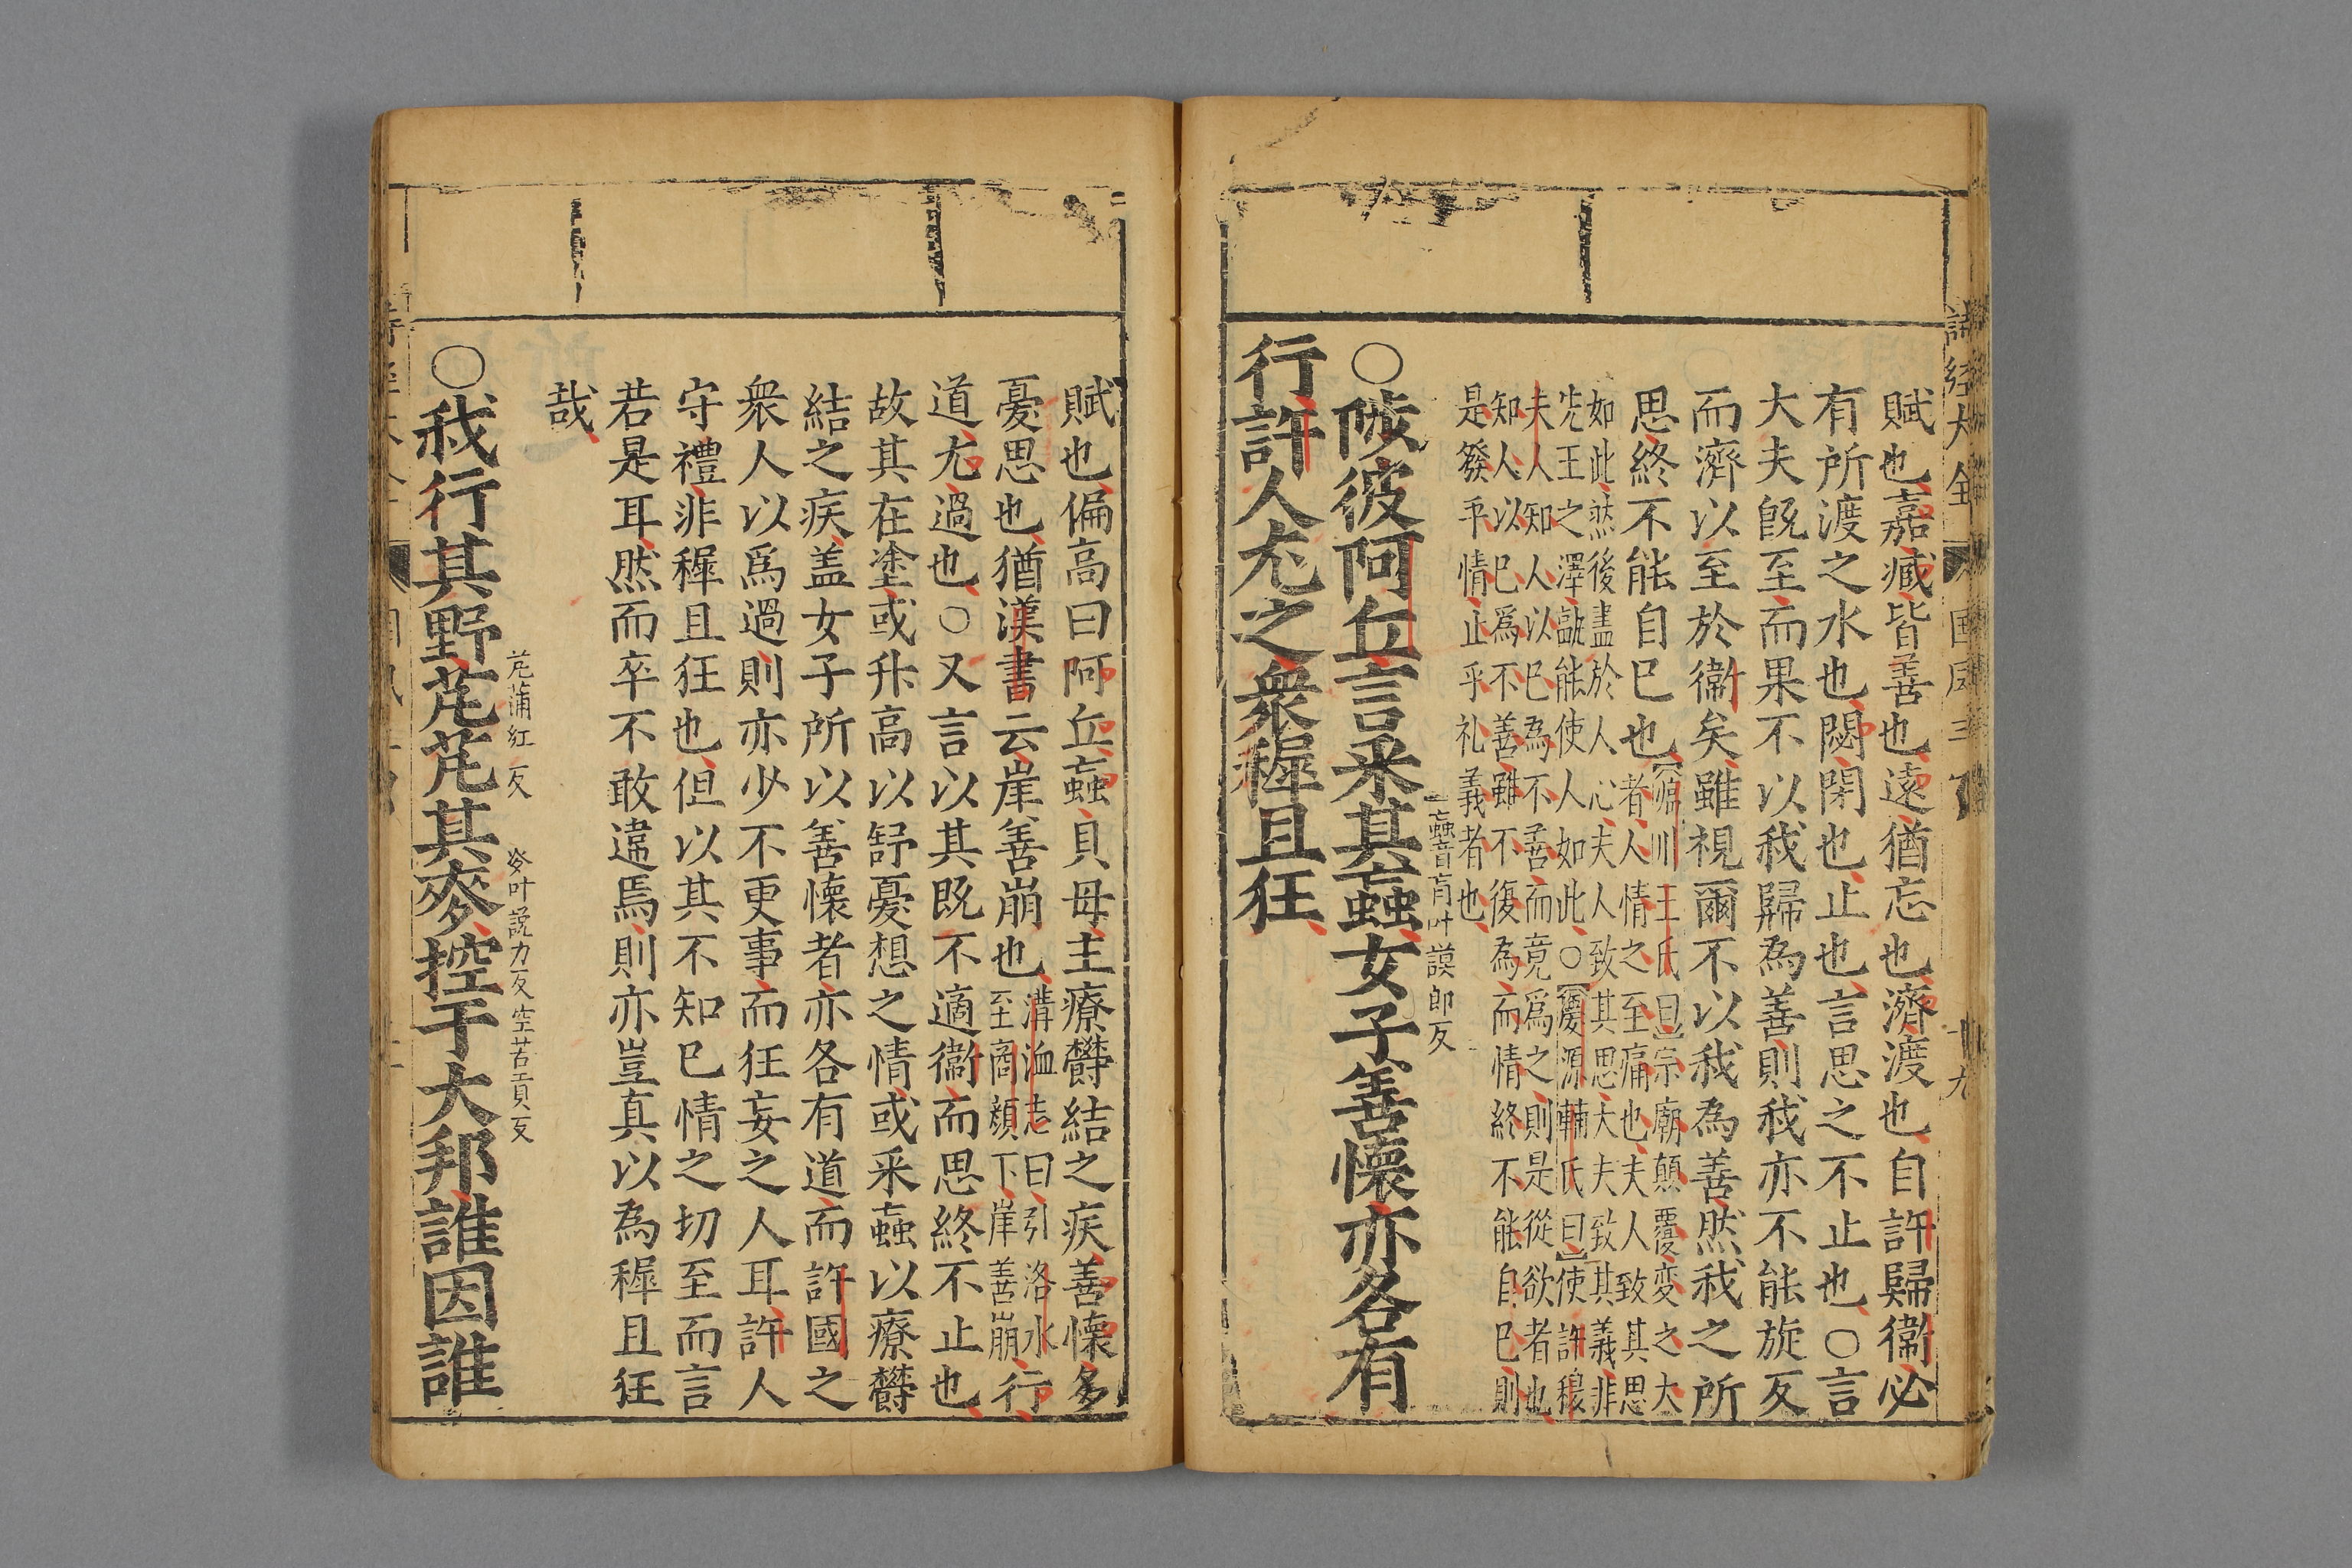 賦也嘉臧皆善也遠猶忘也濟渡也自許歸衞必
有所渡之水也閟閉也止也言思之不止也○言
大夫旣至而果不以我歸為善則我亦不能旋反
而濟以至於衞矣雖視爾不以我為善然我之所
思終不能自已也
源川王氏曰宗廟顛覆変之大
者人情之至痛也夫人致其思
如此然後盡於人心夫人致其思大夫致其義非
先王之澤詎能使人如此○慶源輔氏曰使許穆
夫人知人以已為不善而竟爲之則是從欲者也
知人以已爲不善雖不復為而情終不能自已則
是發乎情止乎礼義者也
○陟彼阿丘言采其蝱女子善懷亦各有
蝱音盲叶謨郎反
行許人尤之衆穉且狂
詩經大全 國風三 十九
賦也偏高曰阿丘蝱貝母主療欝結之疾善懷多
憂思也猶漢書云岸善崩也
溝洫志曰引洛水
至商顔下岸善崩
行
道尤過也○又言以其既不適衞而思終不止也
故其在塗或升高以舒憂想之情或采蝱以療欝
結之疾盖女子所以善懷者亦各有道而許國之
衆人以爲過則亦少不更事而狂妄之人耳許人
守禮非穉且狂也但以其不知已情之切至而言
若是耳然而卒不敢違焉則亦豈真以為穉且狂
哉
○我行其野芃芃其麥控于大邦誰因誰
芃蒲紅反 麥叶訖力反 空苦貢反